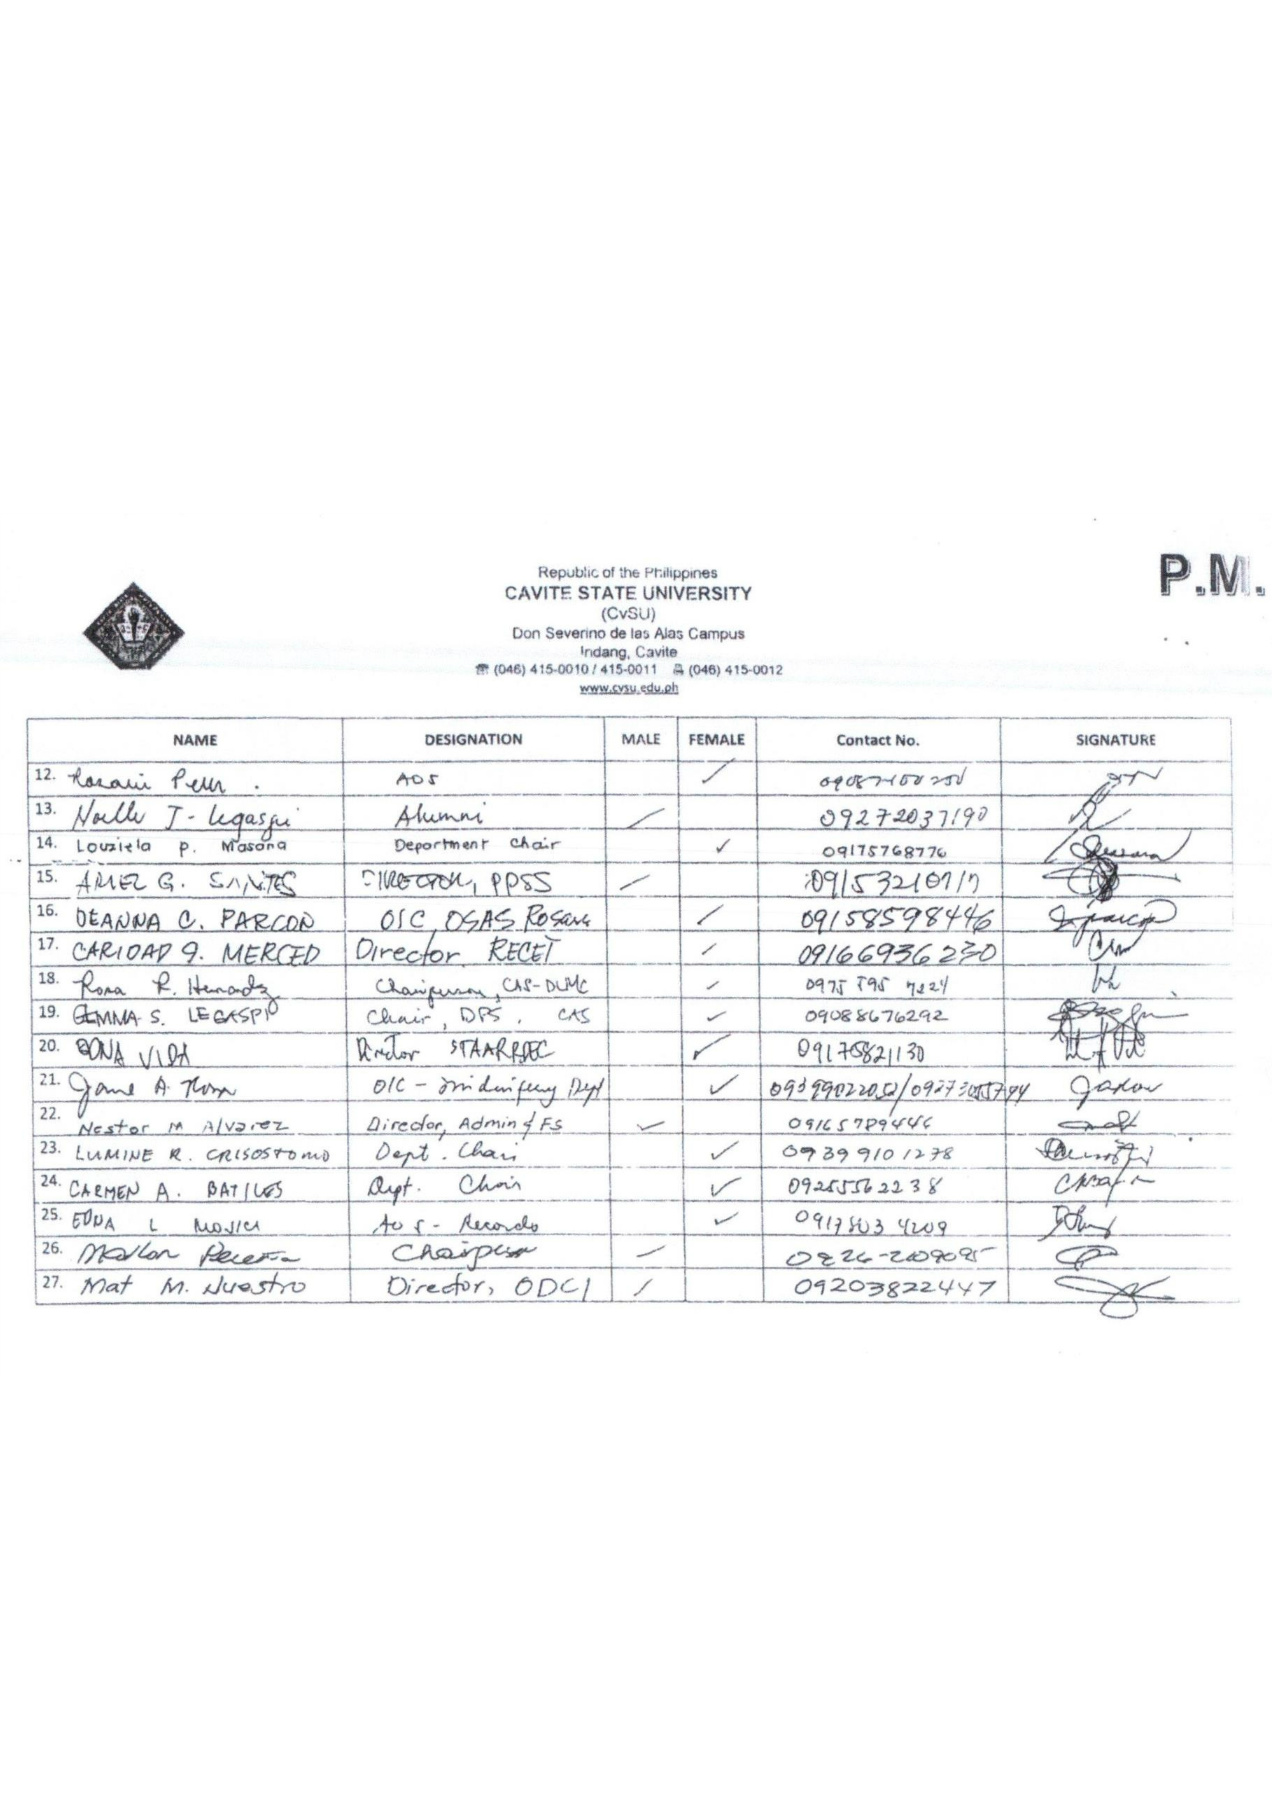 P.M.
Republic of the Philippines
CAVITE STATE UNIVERSITY
(CvSU)
Don Severino de las Alas Campus
Indang, Cavite
☎ (046) 415-0010 / 415-0011 (046) 415-0012
www.cvsu.edu.ph
NAME DESIGNATION MALE FEMALE Contact No. SIGNATURE
12. AOS
13. Legaspi Alumni 09272037190
14. Louziela P. Masana Department Chair 09175768776
15. ARIEL G. SANTES DIRECTOR, PPSS
16. DEANNA C. PARCON OIC, OSAS Rosario 09158598446
17. CARIDAD G. MERCED Director RECET 09166936230
18. Rosa R. Chairperson, CAS-DLMC
19. GEMMA S. LEGASPI Chair, DPS, CAS 09088676292
20. EDNA VIDA Director STAARRDEC 09175821130
21. A. OIC - Midwifery Dept
22. Nestor M Alvarez Director, Admin & FS 09165789446
23. LUMINE R. CRISOSTOMO Dept. Chair 09399101278
24. CARMEN A. BATILES Dept. Chair 09255562238
25. EDNA L MOJICA AOS - Records 0917803 4209
26. Chairperson
27. Mat M. Nuestro Director, ODCI 09203822447